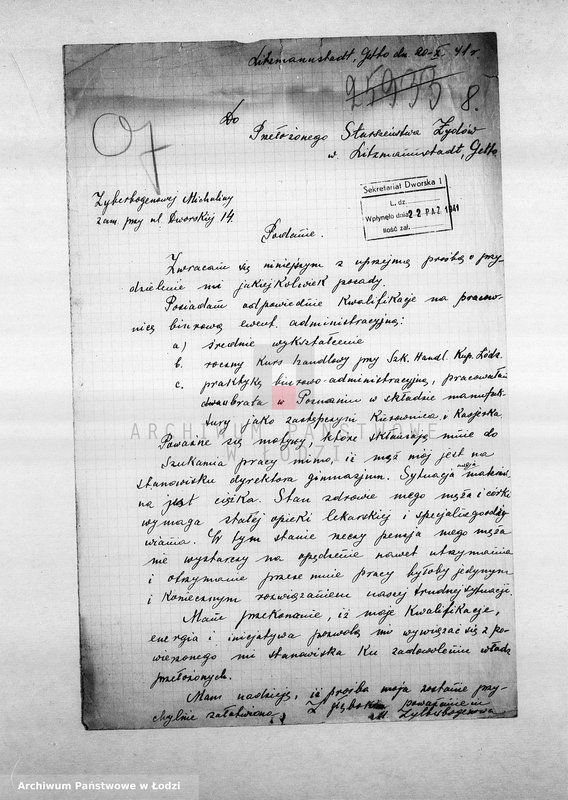 Litzmannstadt, Getto dn 20-X 41 r.
25933 8.
Do
Przełożonego Starszeństwa Żydów
w. Litzmannstadt, Getto
Zylberbogenowej Michaliny
zam. przy ul. Dworskiej 14.
Sekretariat Dworska 1
L. dz.
Wpłynęło dnia 22 PAZ. 1941
Ilość zał.
Podanie.
Zwracam się niniejszym z uprzejmą prośbą o przy-
dzielenie mi jakiejkolwiek posady.
Posiadam odpowiednie kwalifikacje na pracow-
nicę biurową ewent. administracyjną:
a) średnie wykształcenie
b. roczny kurs handlowy przy Szk. Handl. Kup. Łódz.
c. praktykę biurowo-administracyjną, pracowałam
dwa lata w Poznaniu w składzie manufak-
tury jako zastępczyni kierownica i kasjerka
Poważne są motywy, które skłaniają mnie do
szukania pracy mimo, iż mąż mój jest na
stanowisku dyrektora gimnazjum. Sytuacja moja material-
na jest ciężka. Stan zdrowia mego męża i córki
wymaga stałej opieki lekarskiej i specjalnego odży-
wiania. W tym stanie rzeczy pensja mego męża
nie wystarczy na opędzenie nawet utrzymania
i otrzymanie przeze mnie pracy byłoby jedynym
i koniecznym rozwiązaniem naszej trudnej sytuacji.
Mam przekonanie, iż moje kwalifikacje,
energia i inicjatywa pozwolą mi wywiązać się z po-
wierzonego mi stanowiska ku zadowoleniu władz
przełożonych.
Mam nadzieję, iż prośba moja zostanie przy-
chylnie załatwiona.
Z głębokim poważaniem
M. Zylberbogenowa
ARCHIWUM PAŃSTWOWE
W ŁODZI
Archiwum Państwowe w Łodzi